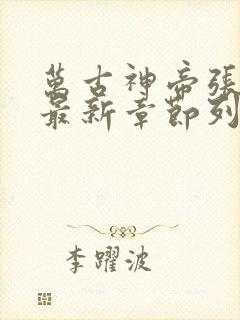 萬古神帝張
最新章節列
李躍波